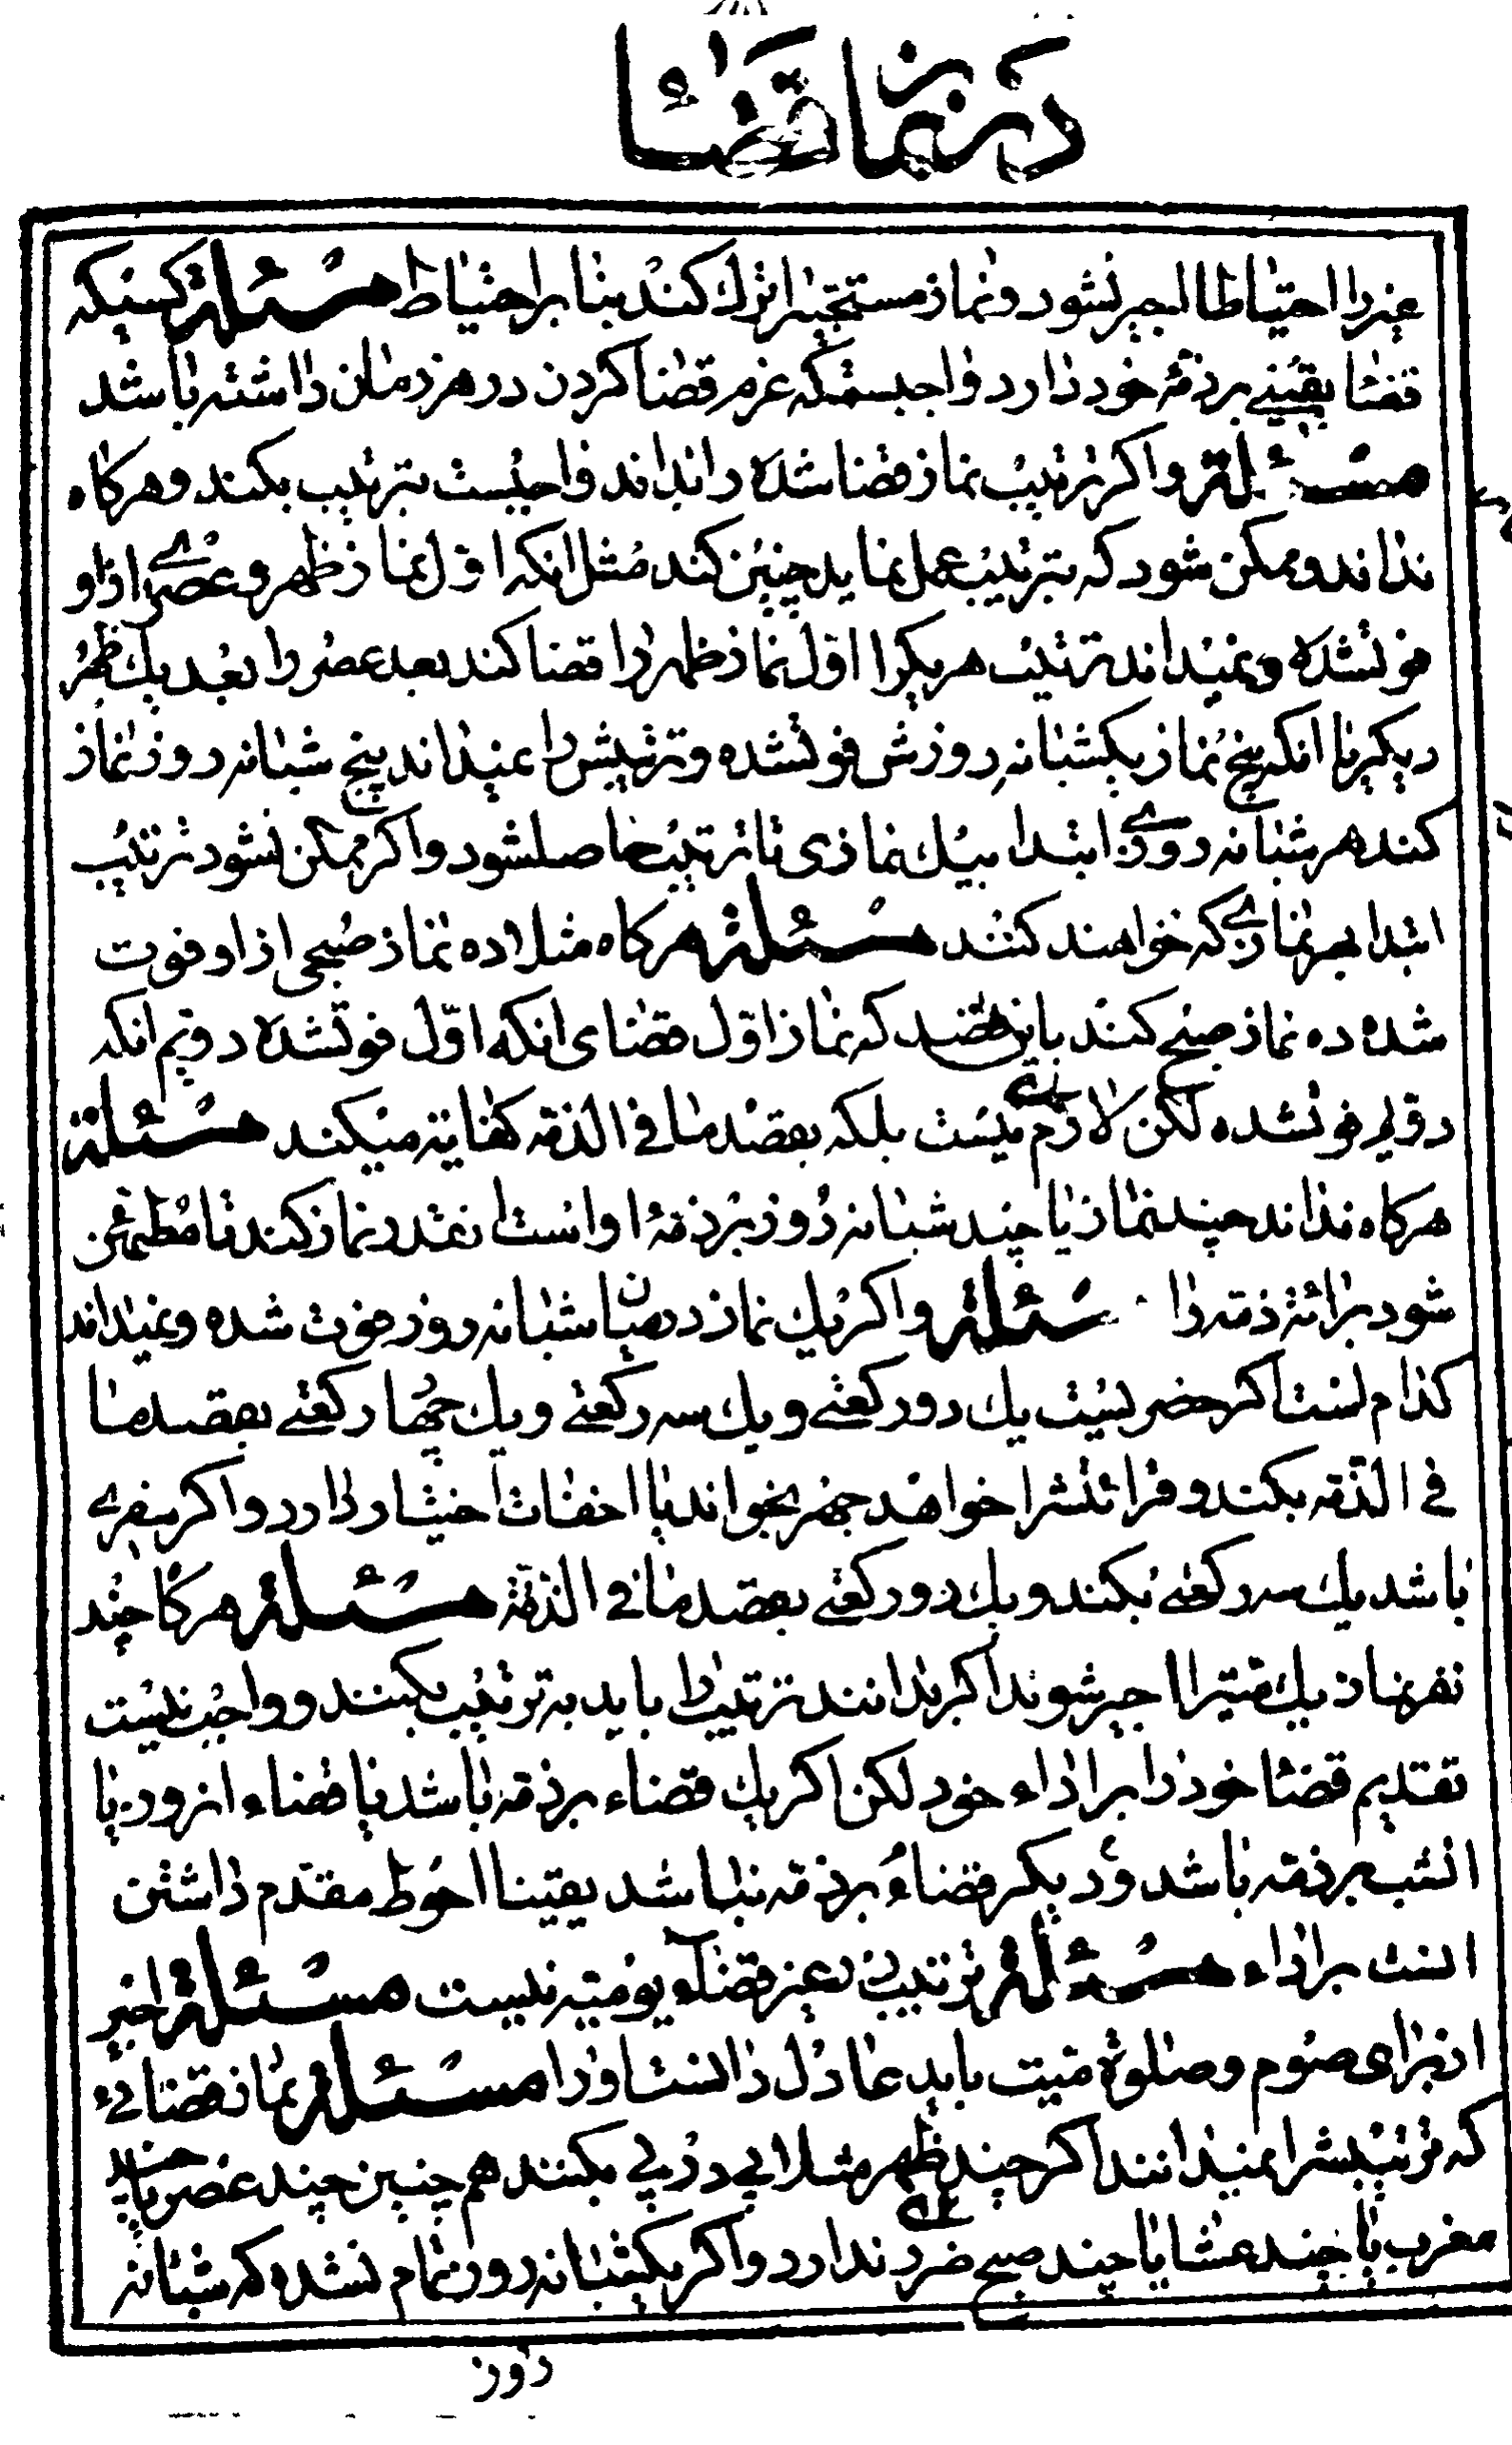 در نماز قضا
غیر را احتیاطا اجیر نشود و نماز مستحبیرا ترك کند بنا بر احتیاط مسئلة کسیکه
قضا یقینی بر ذمّه خود دارد واجبستکه عزم قضا کردن در هر زمان داشته باشد
مسئلة و اکر ترتیب نماز قضا شده را بداند واجبست بترتیب بکند و هرکاه
نداند و ممکن شود که بترتیب عمل نماید چنین کند مثل انکه اوّل نماز ظهر و عصری از او
فوتشده و نمیداند ترتیب هر یکرا اوّل نماز ظهر را قضا کند بعد عصر را بعد یك ظهر
دیکر یا انکه پنج نماز یکشبانه روزش فوتشده و ترتیبش را نمیداند پنج شبانه روز نماز
کند هر شبانه روزی ابتدا بیك نمازی تا ترتیب حاصلشود و اکر ممکن نشود ترتیب
ابتدا بهر نمازی که خواهند کنند مسئلة هرکاه مثلا ده نماز صبحی از او فوت
شده ده نماز صبح کند باین قصد که نماز اوّل قضای انکه اوّل فوتشده دویّم انکه
دویم فوتشده لکن لازم نیست بلکه بقصد ما فی الذمّه کفایة میکند مسئلة
هرکاه نداند چند نماز یا چند شبانه روز بر ذمّه او است انقدر نماز کند تا مطمئن
شود برائة ذمّه را مسئلة و اکر یك نماز در میان شبانه روز فوت شده و نمیداند
کدام است اکر حضریست یك دو رکعتی و یك سه رکعتی و یك چهار رکعتی بقصد ما
فی الذمّه بکند و قرائتشرا خواهد جهر بخواند یا اخفات اختیار دارد و اکر سفری
باشد یك سه رکعتی بکند و یك دو رکعتی بقصد ما فی الذمّة مسئلة هرکا چند
نفر نماز یك میّترا اجیر شوند اکر بدانند ترتیب را باید به ترتیب بکنند و واجب نیست
تقدیم قضا خود را بر اداء خود لکن اکر یك قضاء بر ذمّه باشد یا قضاء انروز یا
انشب بر ذمّه باشد و دیکر قضاء بر ذمّه نباشد یقینا احوط مقدّم داشتن
انست بر اداء مسئلة ترتیب در غیر قضاء یومیّه نیست مسئلة اجیر
از برای صوم و صلوة میّت باید عادل دانست او را مسئلة نماز قضائی
که ترتیبشرا نمیدانند اکر چند ظهر مثلا پی در پی بکنند هم چنین چند عصر یا چند
مغرب یا چند عشا یا چند صبح ضرر ندارد و اکر یکشبانه روز تمام نشده که شبانه
روز